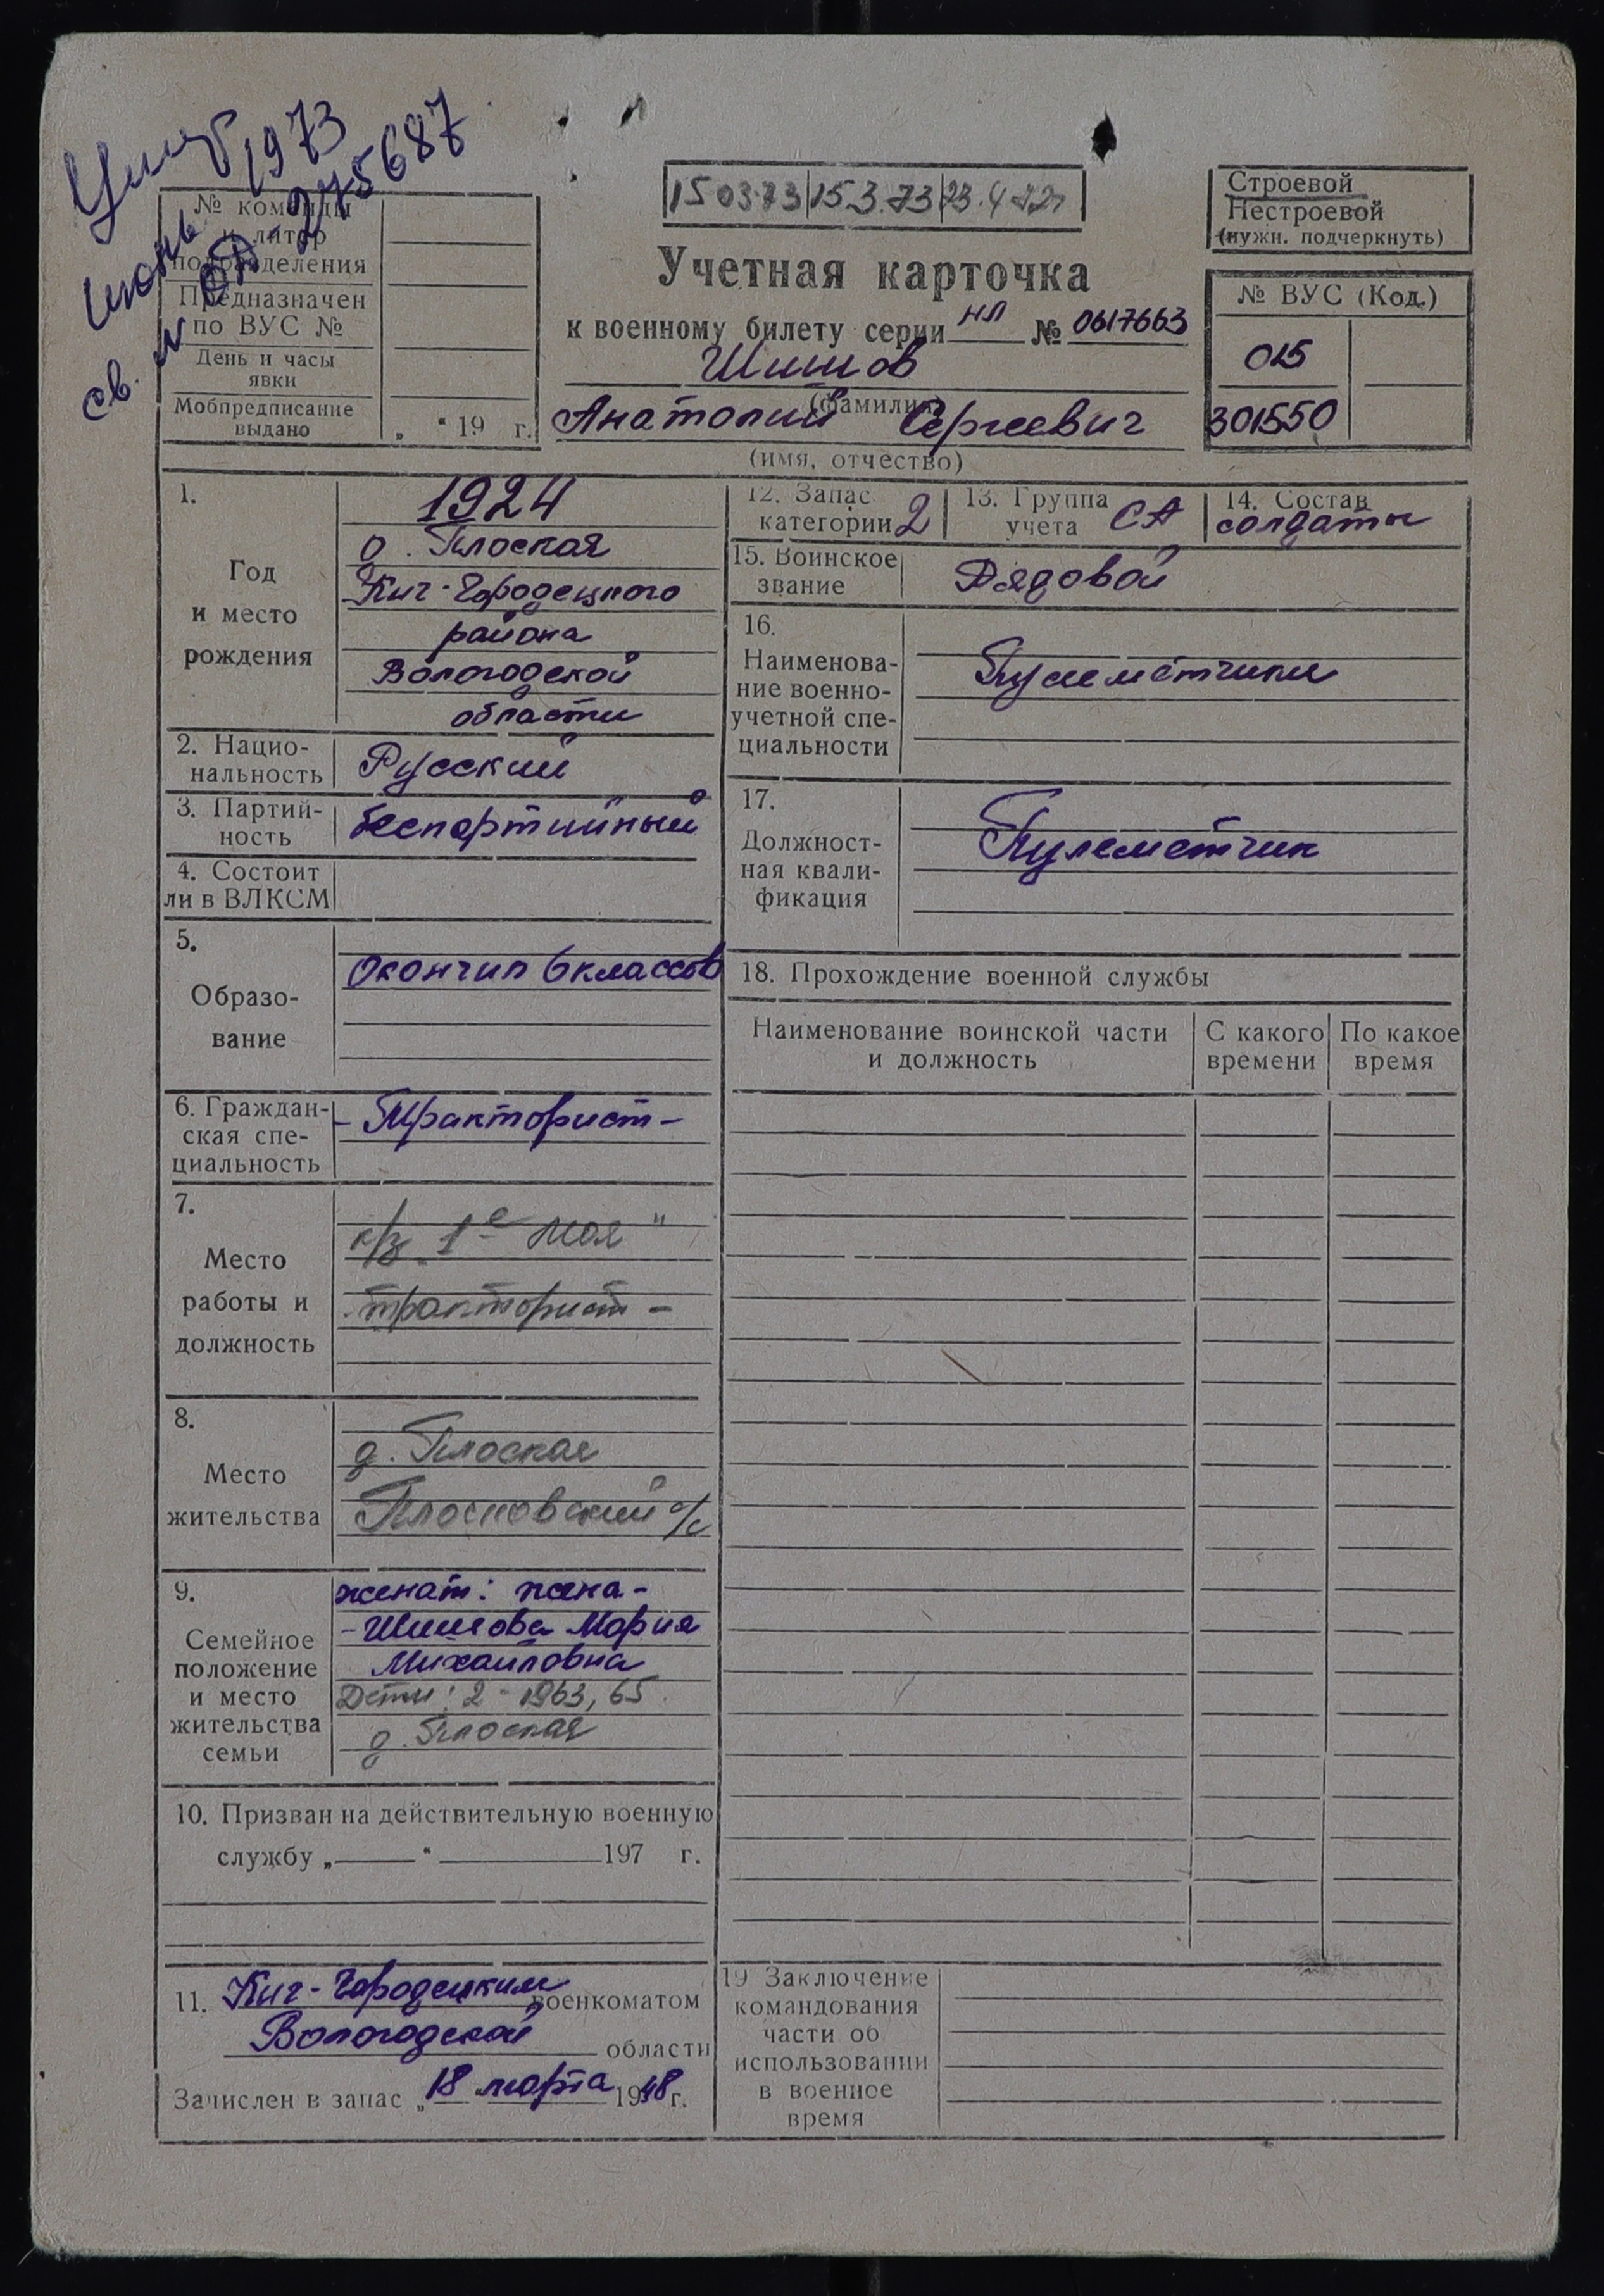 Умер
июнь 1973
св. № 275687
№ команды
и литер
подразделения
Предназначен
по ВУС №
День и часы
явки
Мобпредписание
выдано
„ “ 19 г.
15 03.73 15.3.73 23.4.72г
Учетная карточка
к военному билету серии НЛ № 0617663
Шишов
(фамилия)
Анатолий Сергеевич
(имя, отчество)
Строевой
Нестроевой
(нужн. подчеркнуть)
№ ВУС (Код.)
015
301550
1.
Год
и место
рождения
1924
д. Плоская
Кич-Городецкого
района
Вологодской
области
2. Нацио-
нальность
Русский
3. Партий-
ность
беспартийный
4. Состоит
ли в ВЛКСМ
5.
Образо-
вание
Окончил 6 классов
6. Граждан-
ская спе-
циальность
- Тракторист -
7.
Место
работы и
должность
к/з „1е Мая"
-тракторист -
8.
Место
жительства
д. Плоская
Плосковский с/с
9.
Семейное
положение
и место
жительства
семьи
женат: жена -
- Шишова Мария
Михайловна
Дети: 2 - 1963, 65.
д. Плоская
10. Призван на действительную военную
службу „ “ 197 г.
11. Кич-Городецким военкоматом
Вологодской области
Зачислен в запас „18 марта 1948 г.
12. Запас
категории 2
13. Группа
учета СА
14. Состав
солдаты
15. Воинское
звание
Рядовой
16.
Наименова-
ние военно-
учетной спе-
циальности
Пулеметчики
17.
Должност-
ная квали-
фикация
Пулеметчик
18. Прохождение военной службы
Наименование воинской части
и должность
С какого
времени
По какое
время
19 Заключение
командования
части об
использовании
в военное
время